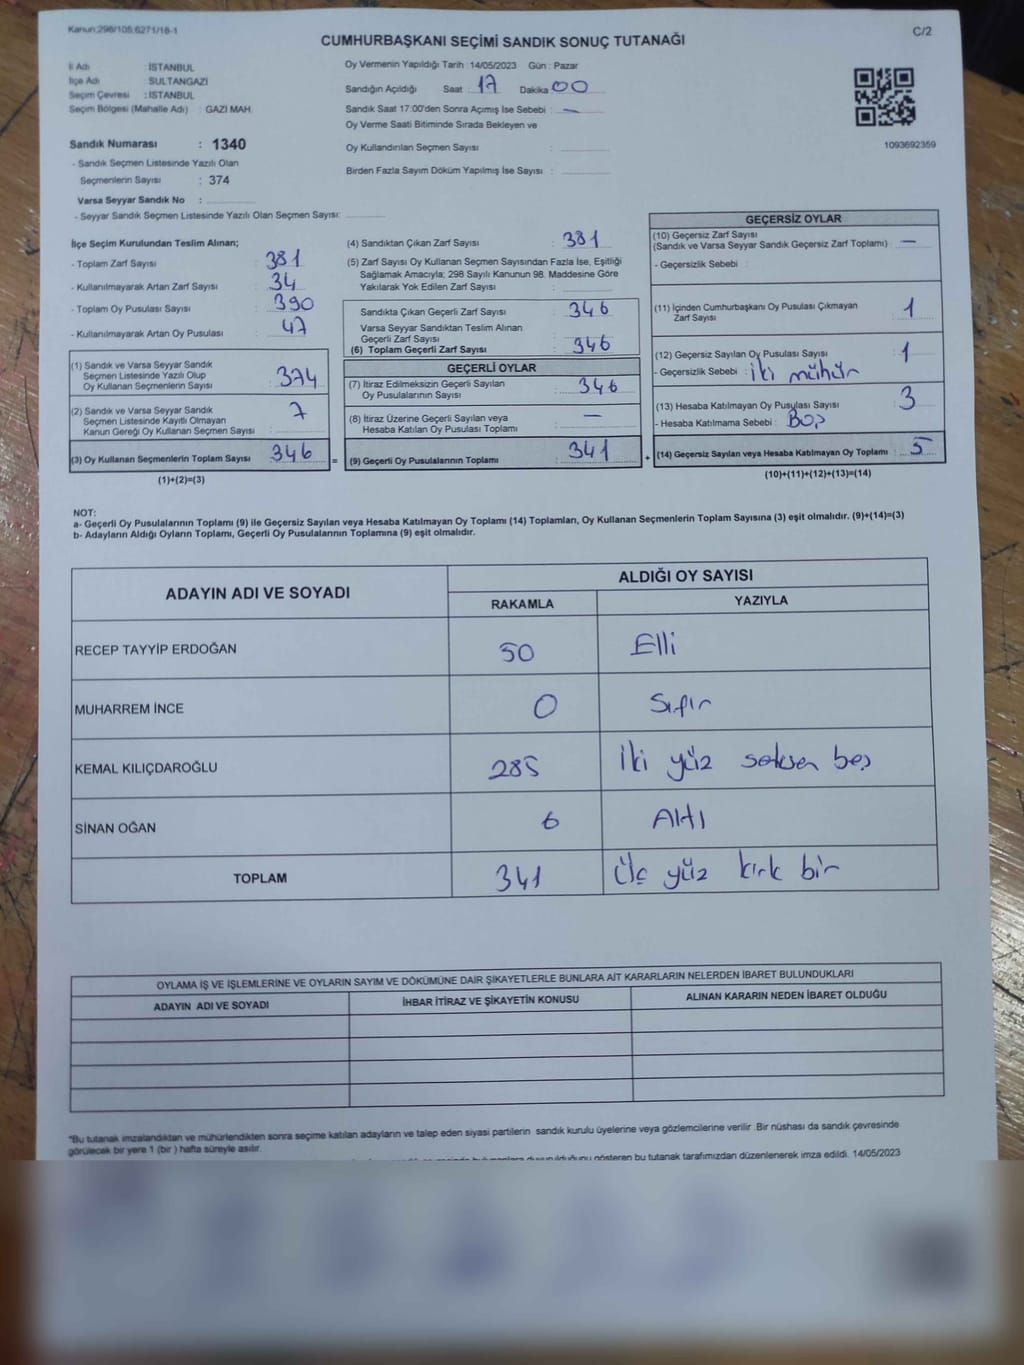 Kanun:298/105,6271/18-1
C/2
CUMHURBAŞKANI SEÇİMİ SANDIK SONUÇ TUTANAĞI
İl Adı : İSTANBUL
İlçe Adı : SULTANGAZİ
Seçim Çevresi : İSTANBUL
Seçim Bölgesi (Mahalle Adı) : GAZİ MAH.
Sandık Numarası : 1340
- Sandık Seçmen Listesinde Yazılı Olan
Seçmenlerin Sayısı : 374
Varsa Seyyar Sandık No :
- Seyyar Sandık Seçmen Listesinde Yazılı Olan Seçmen Sayısı:
Oy Vermenin Yapıldığı Tarih :14/05/2023 Gün : Pazar
Sandığın Açıldığı Saat 17 Dakika 00
Sandık Saat 17:00'den Sonra Açımış İse Sebebi : —
Oy Verme Saati Bitiminde Sırada Bekleyen ve
Oy Kullandırılan Seçmen Sayısı :
Birden Fazla Sayım Döküm Yapılmış İse Sayısı :
1093692359
İlçe Seçim Kurulundan Teslim Alınan;
- Toplam Zarf Sayısı : 381
- Kullanılmayarak Artan Zarf Sayısı : 34
- Toplam Oy Pusulası Sayısı : 390
- Kullanılmayarak Artan Oy Pusulası : 47
(1) Sandık ve Varsa Seyyar Sandık
Seçmen Listesinde Yazılı Olup
Oy Kullanan Seçmenlerin Sayısı : 374
(2) Sandık ve Varsa Seyyar Sandık
Seçmen Listesinde Kayıtlı Olmayan
Kanun Gereği Oy Kullanan Seçmen Sayısı : 7
(3) Oy Kullanan Seçmenlerin Toplam Sayısı : 346 =
(1)+(2)=(3)
(4) Sandıktan Çıkan Zarf Sayısı : 381
(5) Zarf Sayısı Oy Kullanan Seçmen Sayısından Fazla İse, Eşitliği
Sağlamak Amacıyla; 298 Sayılı Kanunun 98. Maddesine Göre
Yakılarak Yok Edilen Zarf Sayısı :
Sandıkta Çıkan Geçerli Zarf Sayısı : 346
Varsa Seyyar Sandıktan Teslim Alınan
Geçerli Zarf Sayısı :
(6) Toplam Geçerli Zarf Sayısı : 346
GEÇERLİ OYLAR
(7) İtiraz Edilmeksizin Geçerli Sayılan
Oy Pusulalarının Sayısı : 346
(8) İtiraz Üzerine Geçerli Sayılan veya
Hesaba Katılan Oy Pusulası Toplamı : —
(9) Geçerli Oy Pusulalarının Toplamı : 341 +
GEÇERSİZ OYLAR
(10) Geçersiz Zarf Sayısı
(Sandık ve Varsa Seyyar Sandık Geçersiz Zarf Toplamı) : —
- Geçersizlik Sebebi :
(11) İçinden Cumhurbaşkanı Oy Pusulası Çıkmayan
Zarf Sayısı : 1
(12) Geçersiz Sayılan Oy Pusulası Sayısı : 1
- Geçersizlik Sebebi : iki mühür
(13) Hesaba Katılmayan Oy Pusulası Sayısı : 3
- Hesaba Katılmama Sebebi : Boş
(14) Geçersiz Sayılan veya Hesaba Katılmayan Oy Toplamı : 5
(10)+(11)+(12)+(13)=(14)
NOT:
a- Geçerli Oy Pusulalarının Toplamı (9) ile Geçersiz Sayılan veya Hesaba Katılmayan Oy Toplamı (14) Toplamları, Oy Kullanan Seçmenlerin Toplam Sayısına (3) eşit olmalıdır. (9)+(14)=(3)
b- Adayların Aldığı Oyların Toplamı, Geçerli Oy Pusulalarının Toplamına (9) eşit olmalıdır.
ADAYIN ADI VE SOYADI
ALDIĞI OY SAYISI
RAKAMLA YAZIYLA
RECEP TAYYİP ERDOĞAN 50 Elli
MUHARREM İNCE 0 Sıfır
KEMAL KILIÇDAROĞLU 285 iki yüz seksen beş
SİNAN OĞAN 6 Altı
TOPLAM 341 üç yüz kırk bir
OYLAMA İŞ VE İŞLEMLERİNE VE OYLARIN SAYIM VE DÖKÜMÜNE DAİR ŞİKAYETLERLE BUNLARA AİT KARARLARIN NELERDEN İBARET BULUNDUKLARI
ADAYIN ADI VE SOYADI İHBAR İTİRAZ VE ŞİKAYETİN KONUSU ALINAN KARARIN NEDEN İBARET OLDUĞU
*Bu tutanak imzalandıktan ve mühürlendikten sonra seçime katılan adayların ve talep eden siyasi partilerin sandık kurulu üyelerine veya gözlemcilerine verilir. Bir nüshası da sandık çevresinde
görülecek bir yere 1 (bir) hafta süreyle asılır.
duyurulduğunu gösteren bu tutanak tarafımızdan düzenlenerek imza edildi. 14/05/2023